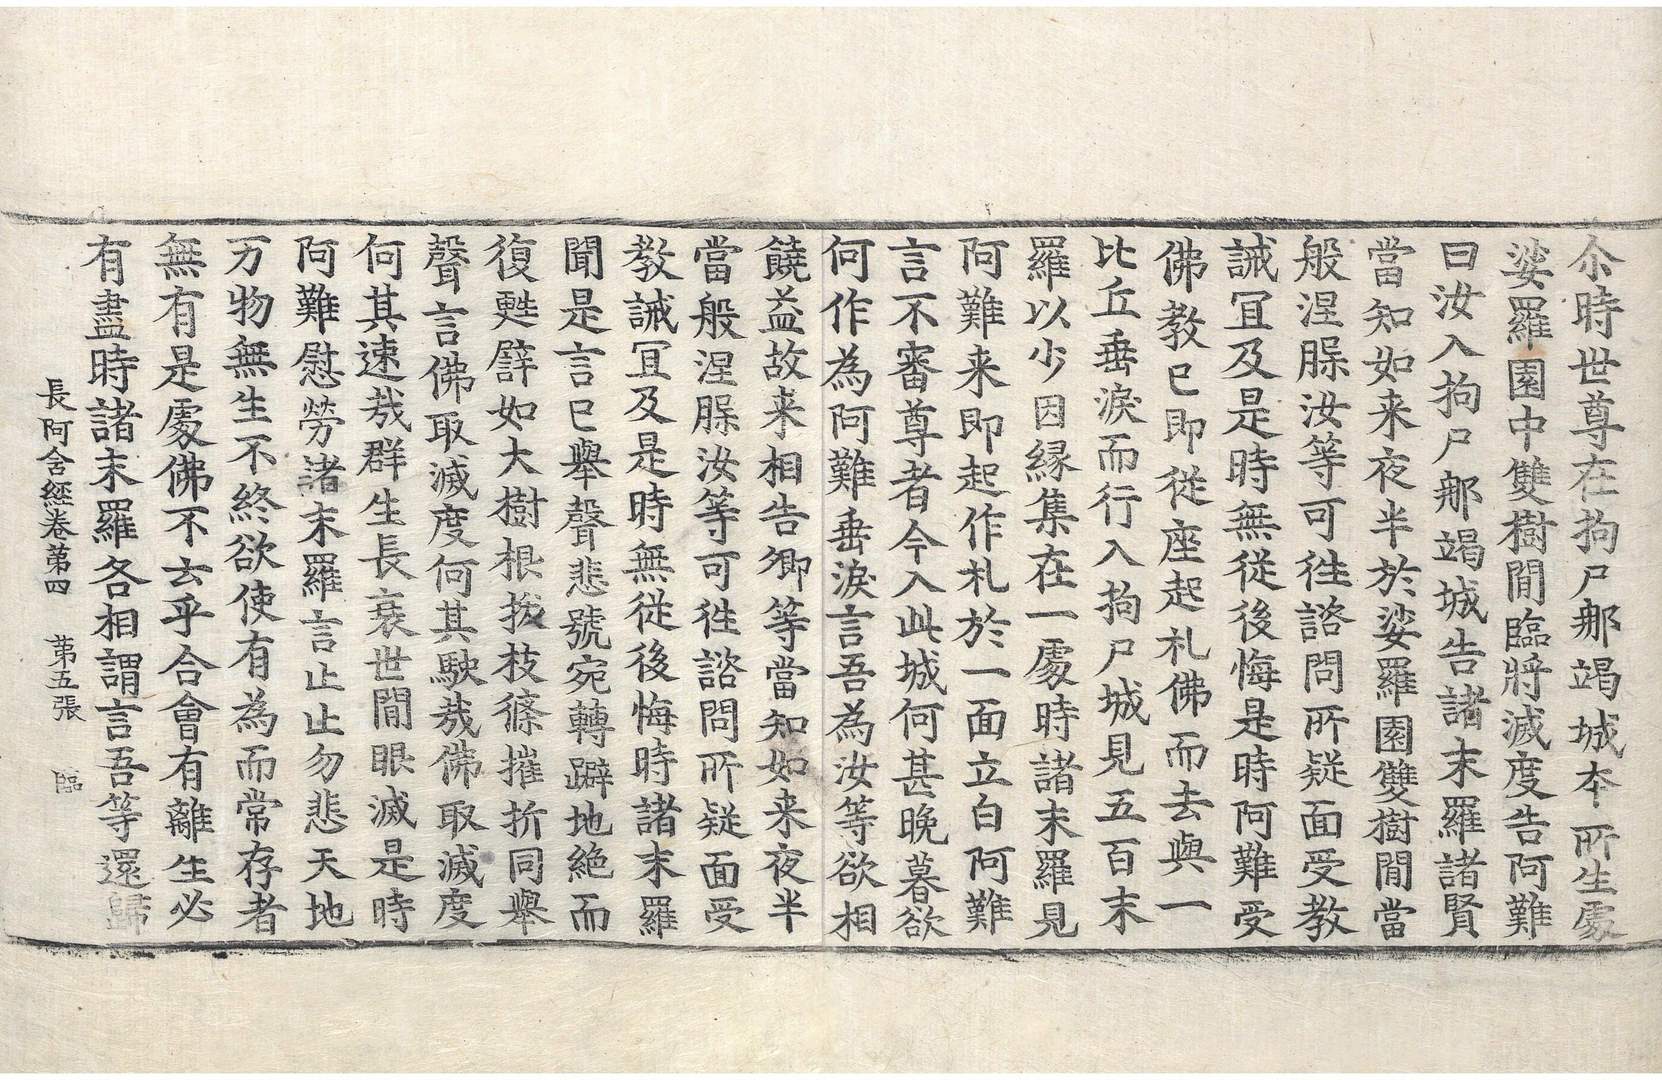 尒時世尊在拘尸那竭城夲所生處
娑羅園中雙樹閒臨將滅度告阿難
曰汝入拘尸那竭城告諸末羅諸賢
當知如来夜半於娑羅園雙樹閒當
般涅脲汝等可徃諮問所疑面受教
誡冝及是時無從後悔是時阿難受
佛教已即從座起礼佛而去與一
比丘垂淚而行入拘尸城見五百末
羅以少因縁集在一處時諸末羅見
阿難来即起作礼於一面立白阿難
言不審尊者今入此城何甚晚暮欲
何作為阿難垂淚言吾為汝等欲相
饒益故来相告卿等當知如来夜半
當般涅脲汝等可徃諮問所疑面受
教誡冝及是時無從後悔時諸末羅
聞是言已舉聲悲號宛轉躃地絶而
復甦譬如大樹根拔枝條摧折同舉
聲言佛取滅度何其駛哉佛取滅度
何其速哉群生長衰世間眼滅是時
阿難慰勞諸末羅言止止勿悲天地
万物無生不終欲使有為而常存者
無有是處佛不去乎合會有離生必
有盡時諸末羅各相謂言吾等還歸
長阿含經卷第四 苐五張 臨